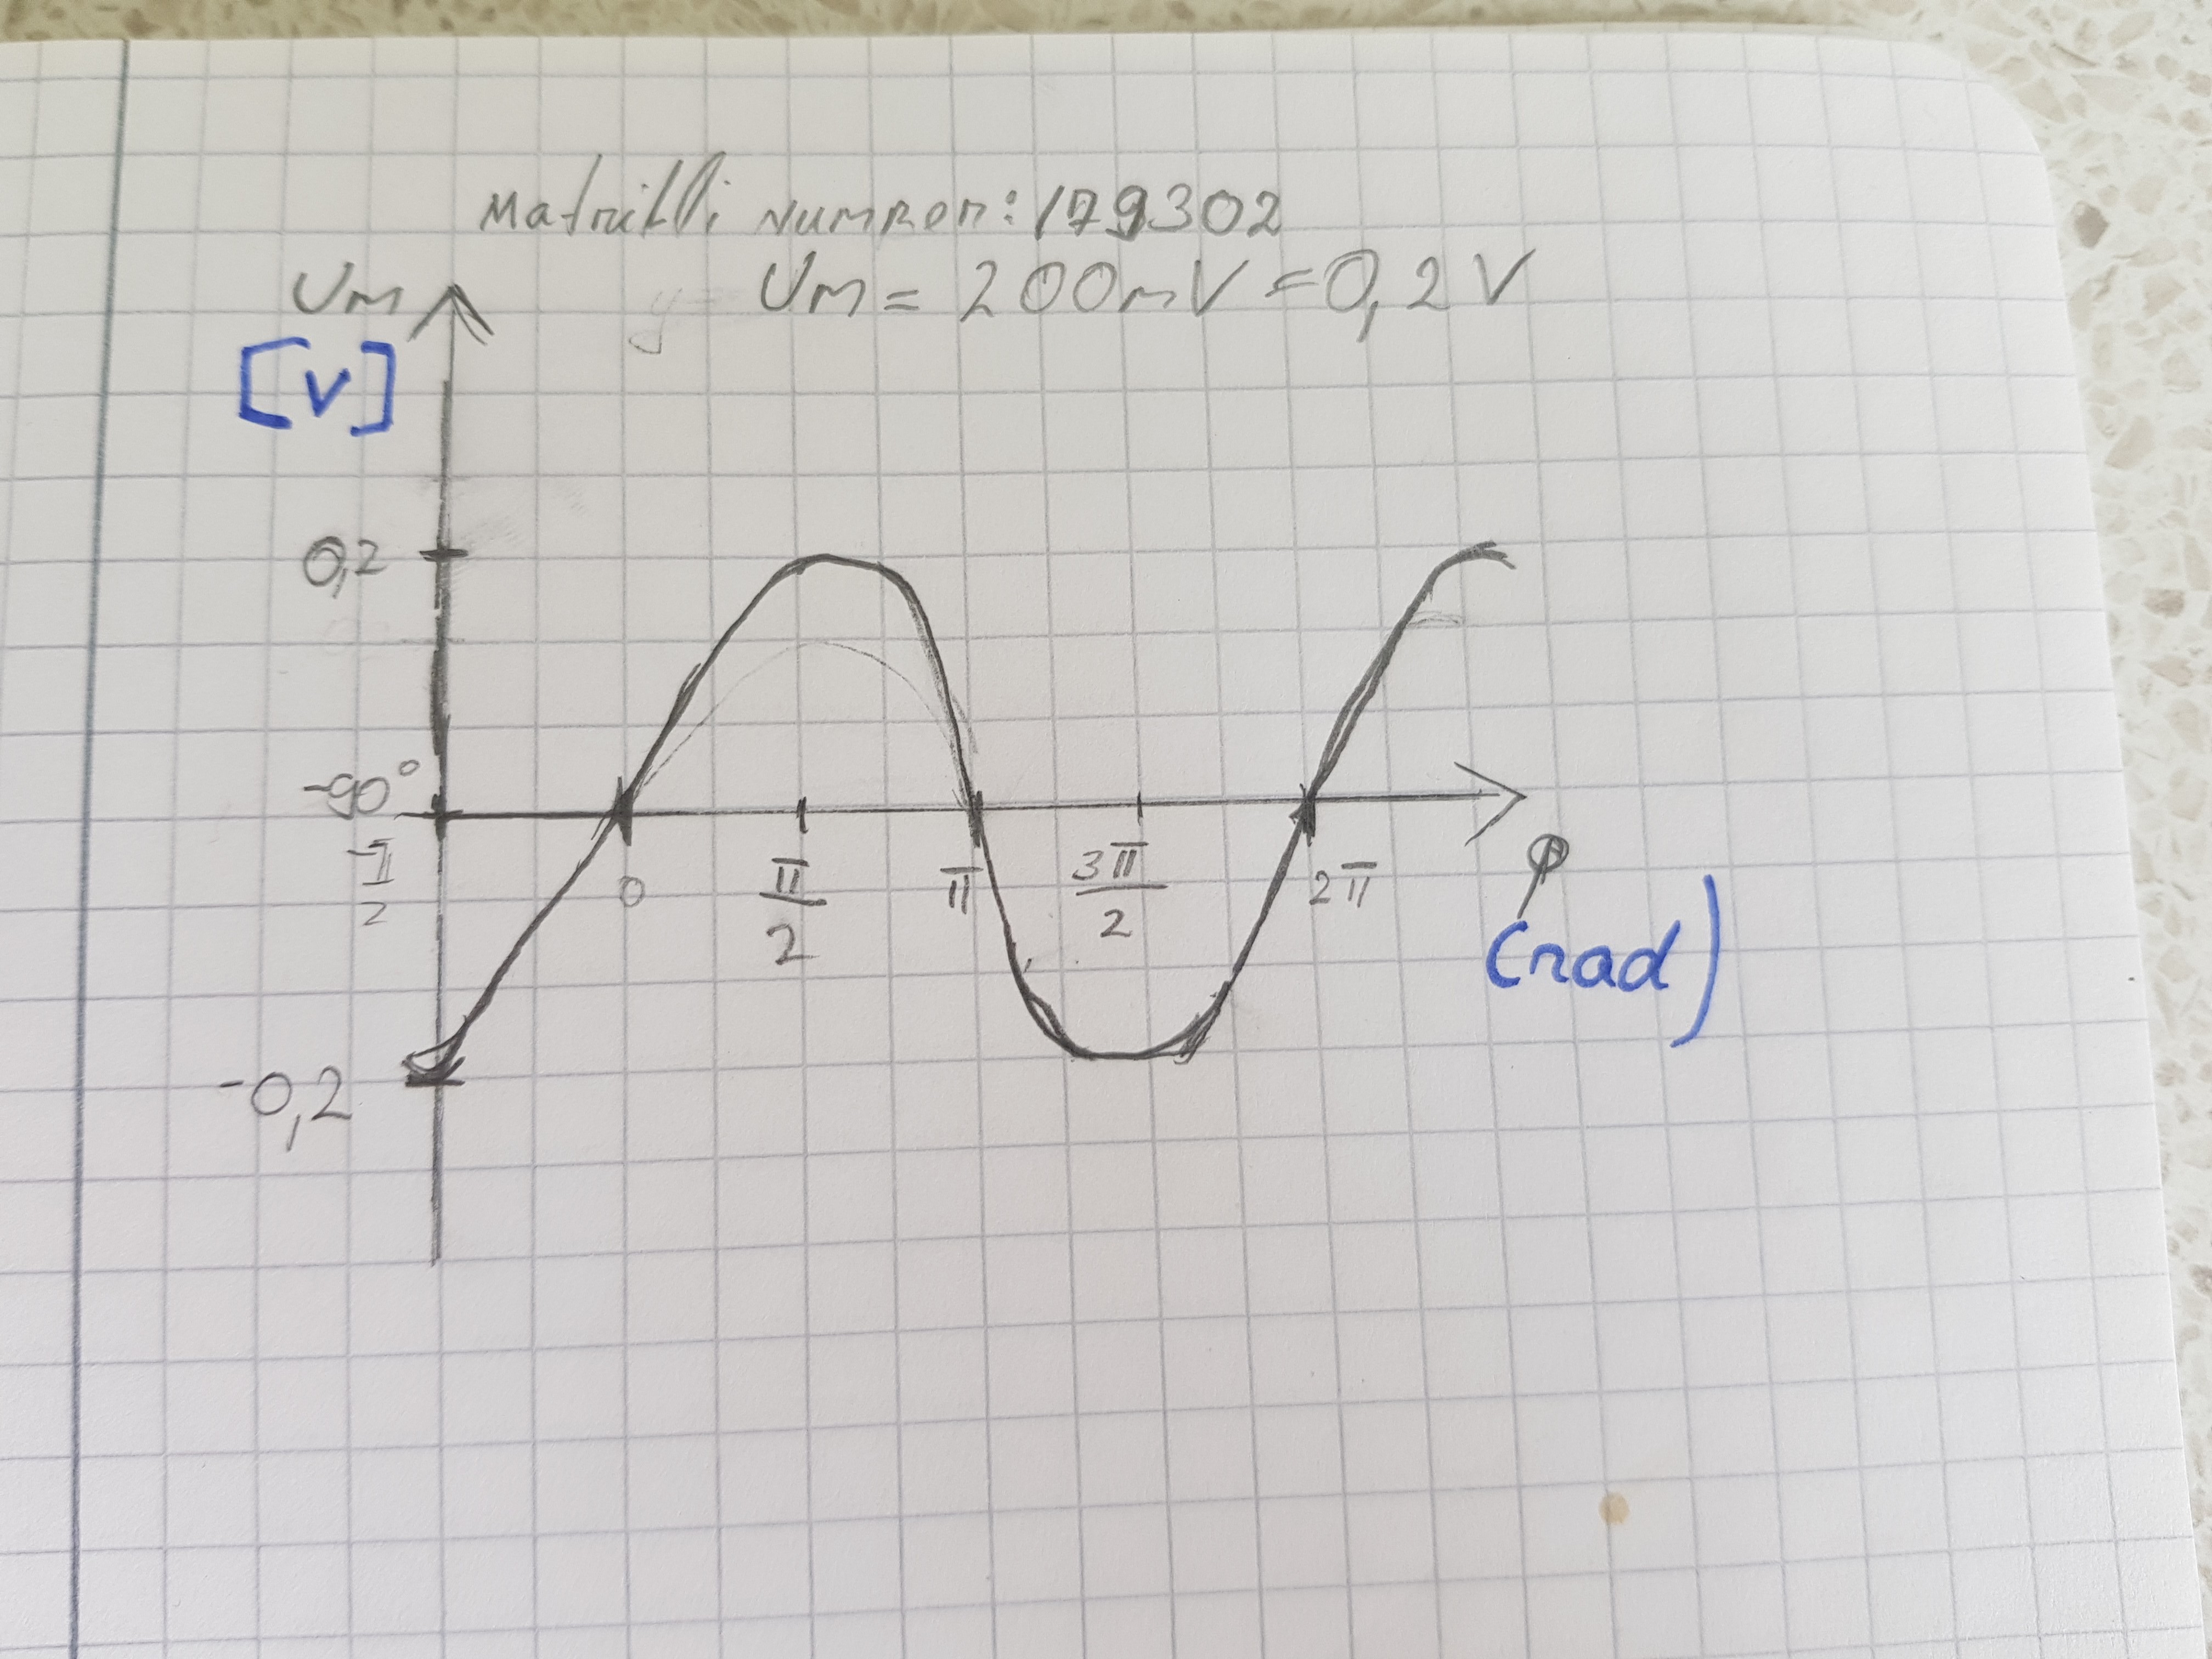 Matrikli number: 179302
Um = 200mV = 0,2 V
Um
[V]
0,2
-90°
-π/2
0
π/2
π
3π/2
2π
φ
(rad)
-0,2